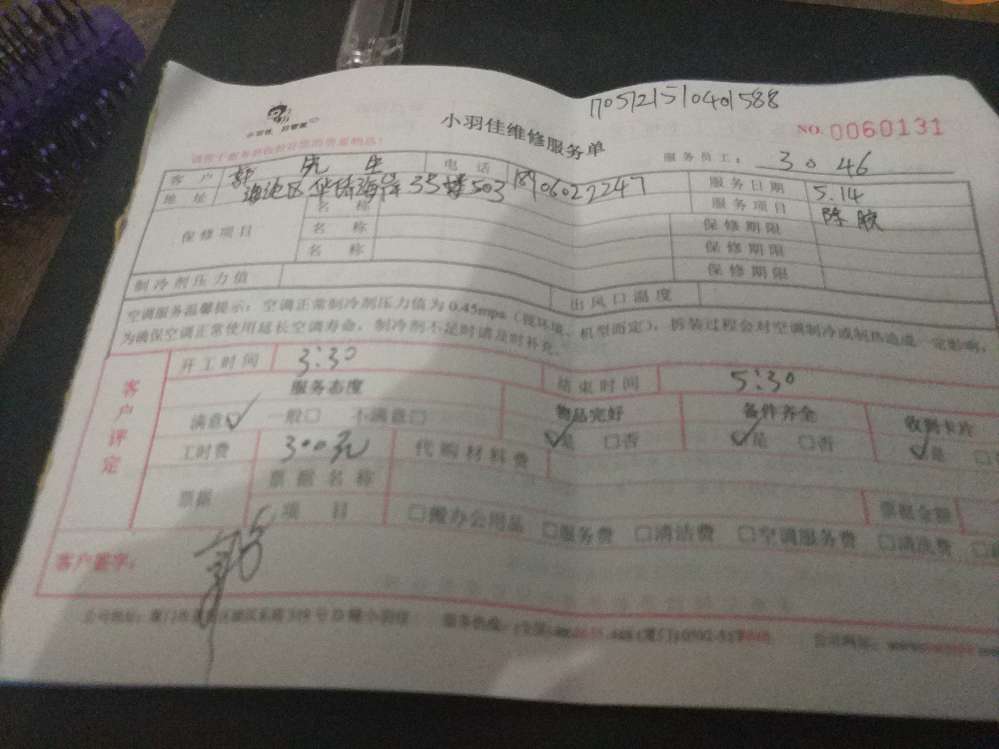 1705121510401588
小羽佳维修服务单
NO. 0060131
服务员工: 3046
客户 郭 先生 电话 18906022247 服务日期 5.14
地址 海沧区华侨海岸35幢503 服务项目 除胶
保修项目 名称 保修期限
名称 保修期限
名称 保修期限
制冷剂压力值 出风口温度
空调服务温馨提示: 空调正常制冷剂压力值为0.45mpa(视环境、机型而定), 拆装过程会对空调制冷或制热造成一定影响,
为确保空调正常使用延长空调寿命, 制冷剂不足时请及时补充。
客户评定
开工时间 3:30 结束时间 5:30
服务态度 物品完好 备件齐全 收到卡片
满意☑ 一般□ 不满意□ ☑是 □否 ☑是 □否 ☑是 □
工时费 300元 代购材料费
票据 票据名称 票据金额
项目 □搬办公用品 □服务费 □清洁费 □空调服务费 □清洗费
客户签字: